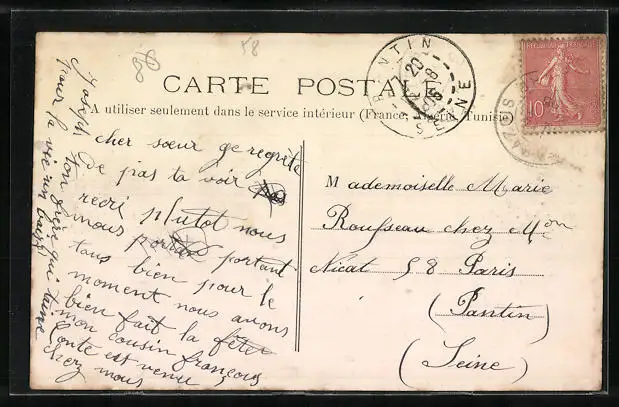 58
CARTE POSTALE
A utiliser seulement dans le service intérieur (France, Algérie, Tunisie)
REPUBLIQUE FRANÇAISE
10
PANTIN
SEINE
cher sœur je regrète
de pas ta voir
plutot nous
nous portan portant
tous bien pour le
moment nous avons
bien fait la fête
mon cousin françois
Conte est venu
chez nous
ton frère qui t'aime
pour la vie un baisé
Mademoiselle Marie
Rousseau chez Mon
Nicat 58 Paris
(Pantin)
(Seine)